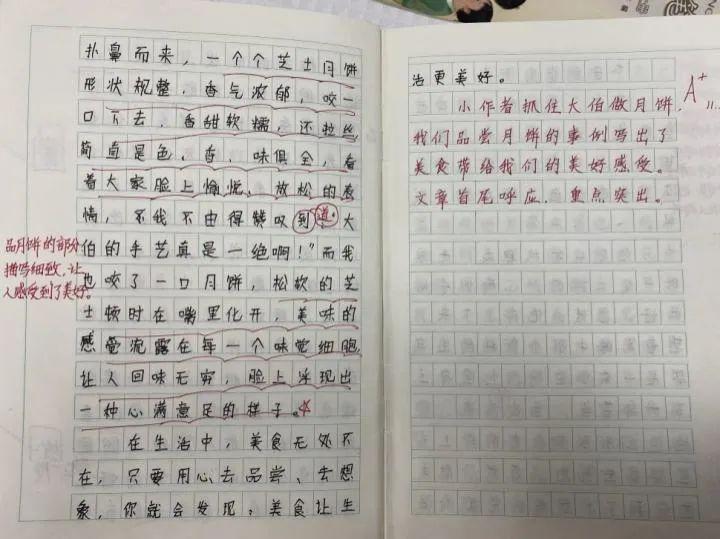 扑鼻而来，一个个芝士月饼
形状规整，香气浓郁，咬一
口下去，香甜软糯，还拉丝
简直是色、香、味俱全。看
着大家脸上愉悦、放松的表
情，不我不由得赞叹到道：大
伯的手艺真是一绝啊！”而我
也咬了一口月饼，松软的芝
士顿时在嘴里化开，美味的
感觉流露在每一个味觉细胞，
让人回味无穷，脸上浮现出
一种心满意足的样子。
在生活中，美食无处不
在，只要用心去品尝、去想
象，你就会发现，美食让生
品月饼的部分
描写细致，让
人感受到了美好。
活更美好。
A+
小作者抓住大伯做月饼，
我们品尝月饼的事例写出了
美食带给我们的美好感受。
文章首尾呼应，重点突出。